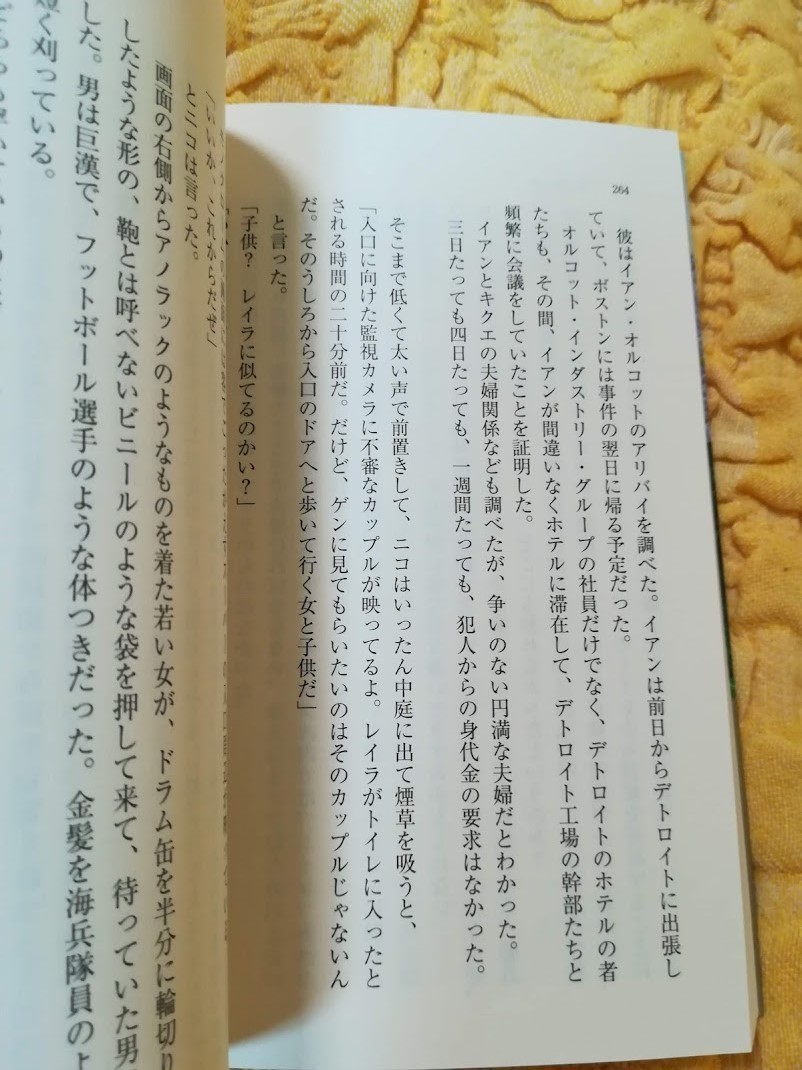 264
彼はイアン・オルコットのアリバイを調べた。イアンは前日からデトロイトに出張し
ていて、ボストンには事件の翌日に帰る予定だった。
オルコット・インダストリー・グループの社員だけでなく、デトロイトのホテルの者
たちも、その間、イアンが間違いなくホテルに滞在して、デトロイト工場の幹部たちと
頻繁に会議をしていたことを証明した。
イアンとキクエの夫婦関係なども調べたが、争いのない円満な夫婦だとわかった。
三日たっても四日たっても、一週間たっても、犯人からの身代金の要求はなかった。
そこまで低くて太い声で前置きして、ニコはいったん中庭に出て煙草を吸うと、
「入口に向けた監視カメラに不審なカップルが映ってるよ。レイラがトイレに入ったと
される時間の二十分前だ。だけど、ゲンに見てもらいたいのはそのカップルじゃないん
だ。そのうしろから入口のドアへと歩いて行く女と子供だ」
と言った。
「子供？　レイラに似てるのかい？」
「いいか、これからだぜ」
とニコは言った。
画面の右側からアノラックのようなものを着た若い女が、ドラム缶を半分に輪切り
したような形の、鞄とは呼べないビニールのような袋を押して来て、待っていた男
した。男は巨漢で、フットボール選手のような体つきだった。金髪を海兵隊員のよ
く刈っている。